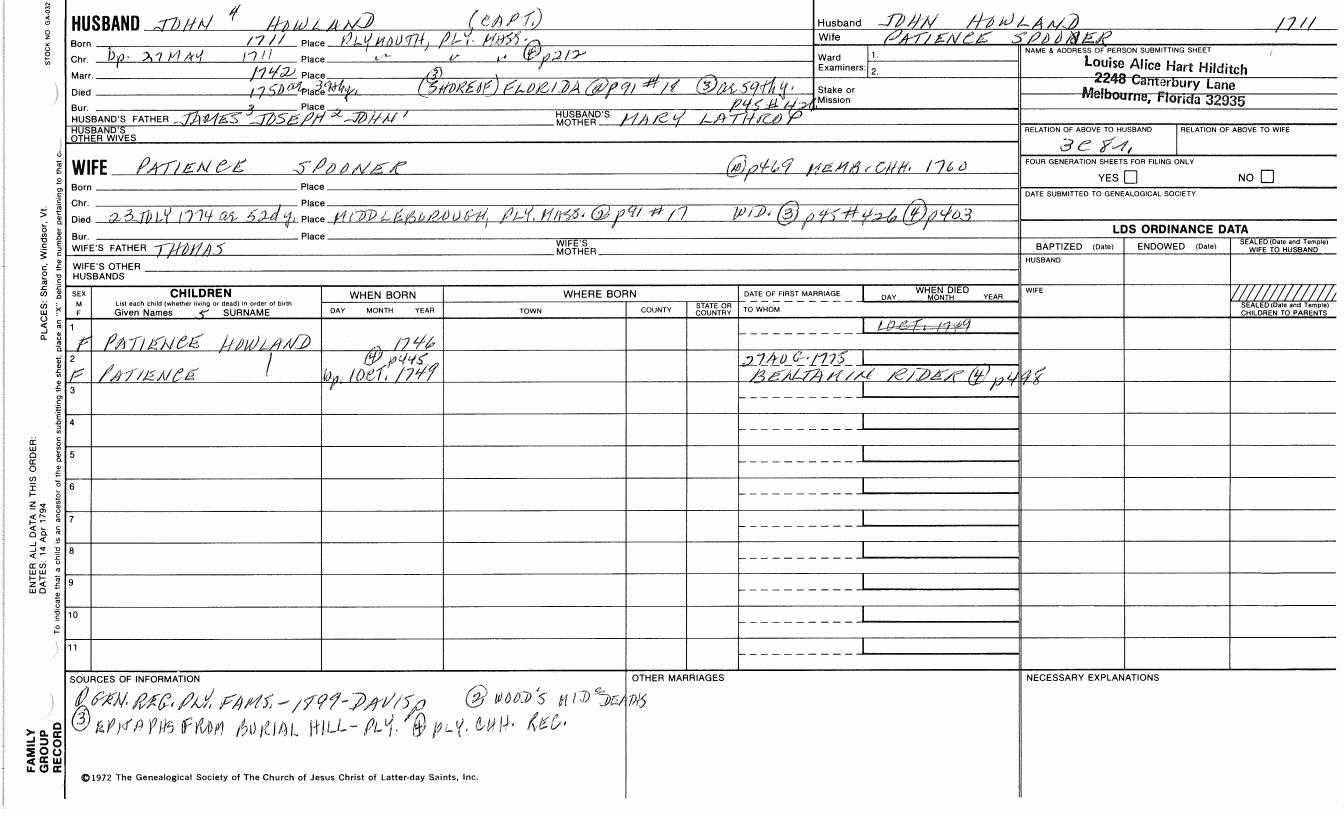 STOCK NO. GA-032
HUSBAND JOHN 4 HOWLAND (CAPT.)
Born 1711 Place PLYMOUTH, PLY. MASS.
Chr. bp. 27 MAY 1711 Place " " " ④ p212
Marr. 1742 Place
Died 1750 ae 39thy. Place (SHORE OF) FLORIDA ② p91 #18 ③ ae 59thy.
Bur. Place p45 #426
HUSBAND'S FATHER JAMES 3 JOSEPH 2 JOHN 1 HUSBAND'S MOTHER MARY LATHROP
HUSBAND'S OTHER WIVES
WIFE PATIENCE SPOONER p469 MEMB. CHH. 1760
Born Place
Chr. Place
Died 23 JULY 1774 ae 52dy. Place MIDDLEBOROUGH, PLY. MASS. ② p91 #17 WID. ③ p45 #426 ④ p403
Bur. Place
WIFE'S FATHER THOMAS WIFE'S MOTHER
WIFE'S OTHER HUSBANDS
Husband JOHN HOWLAND 1711
Wife PATIENCE SPOONER
Ward Examiners: 1. 2.
Stake or Mission
NAME & ADDRESS OF PERSON SUBMITTING SHEET
Louise Alice Hart Hilditch
2248 Canterbury Lane
Melbourne, Florida 32935
RELATION OF ABOVE TO HUSBAND RELATION OF ABOVE TO WIFE
3C 8 1,
FOUR GENERATION SHEETS FOR FILING ONLY
YES NO
DATE SUBMITTED TO GENEALOGICAL SOCIETY
LDS ORDINANCE DATA
BAPTIZED (Date) ENDOWED (Date) SEALED (Date and Temple) WIFE TO HUSBAND
HUSBAND
WIFE
SEALED (Date and Temple) CHILDREN TO PARENTS
SEX M F CHILDREN WHEN BORN WHERE BORN DATE OF FIRST MARRIAGE WHEN DIED
List each child (whether living or dead) in order of birth
Given Names 5 SURNAME DAY MONTH YEAR TOWN COUNTY STATE OR COUNTRY TO WHOM DAY MONTH YEAR
1 F PATIENCE HOWLAND 1746 1 OCT. 1749
④ p445
2 F PATIENCE | bp. 1 OCT. 1749 27 AUG. 1775
BENJAMIN RIDER ④ p498
3
4
5
6
7
8
9
10
11
SOURCES OF INFORMATION OTHER MARRIAGES NECESSARY EXPLANATIONS
① GEN. REG. PLY. FAMS. - 1899 - DAVIS p ② WOOD'S MID DEATHS
③ EPITAPHS FROM BURIAL HILL - PLY. ④ PLY. CHH. REC.
©1972 The Genealogical Society of The Church of Jesus Christ of Latter-day Saints, Inc.
FAMILY GROUP RECORD
ENTER ALL DATA IN THIS ORDER:
DATES: 14 Apr 1794
PLACES: Sharon, Windsor, Vt.
To indicate that a child is an ancestor of the person submitting the sheet, place an "X" behind the number pertaining to that c